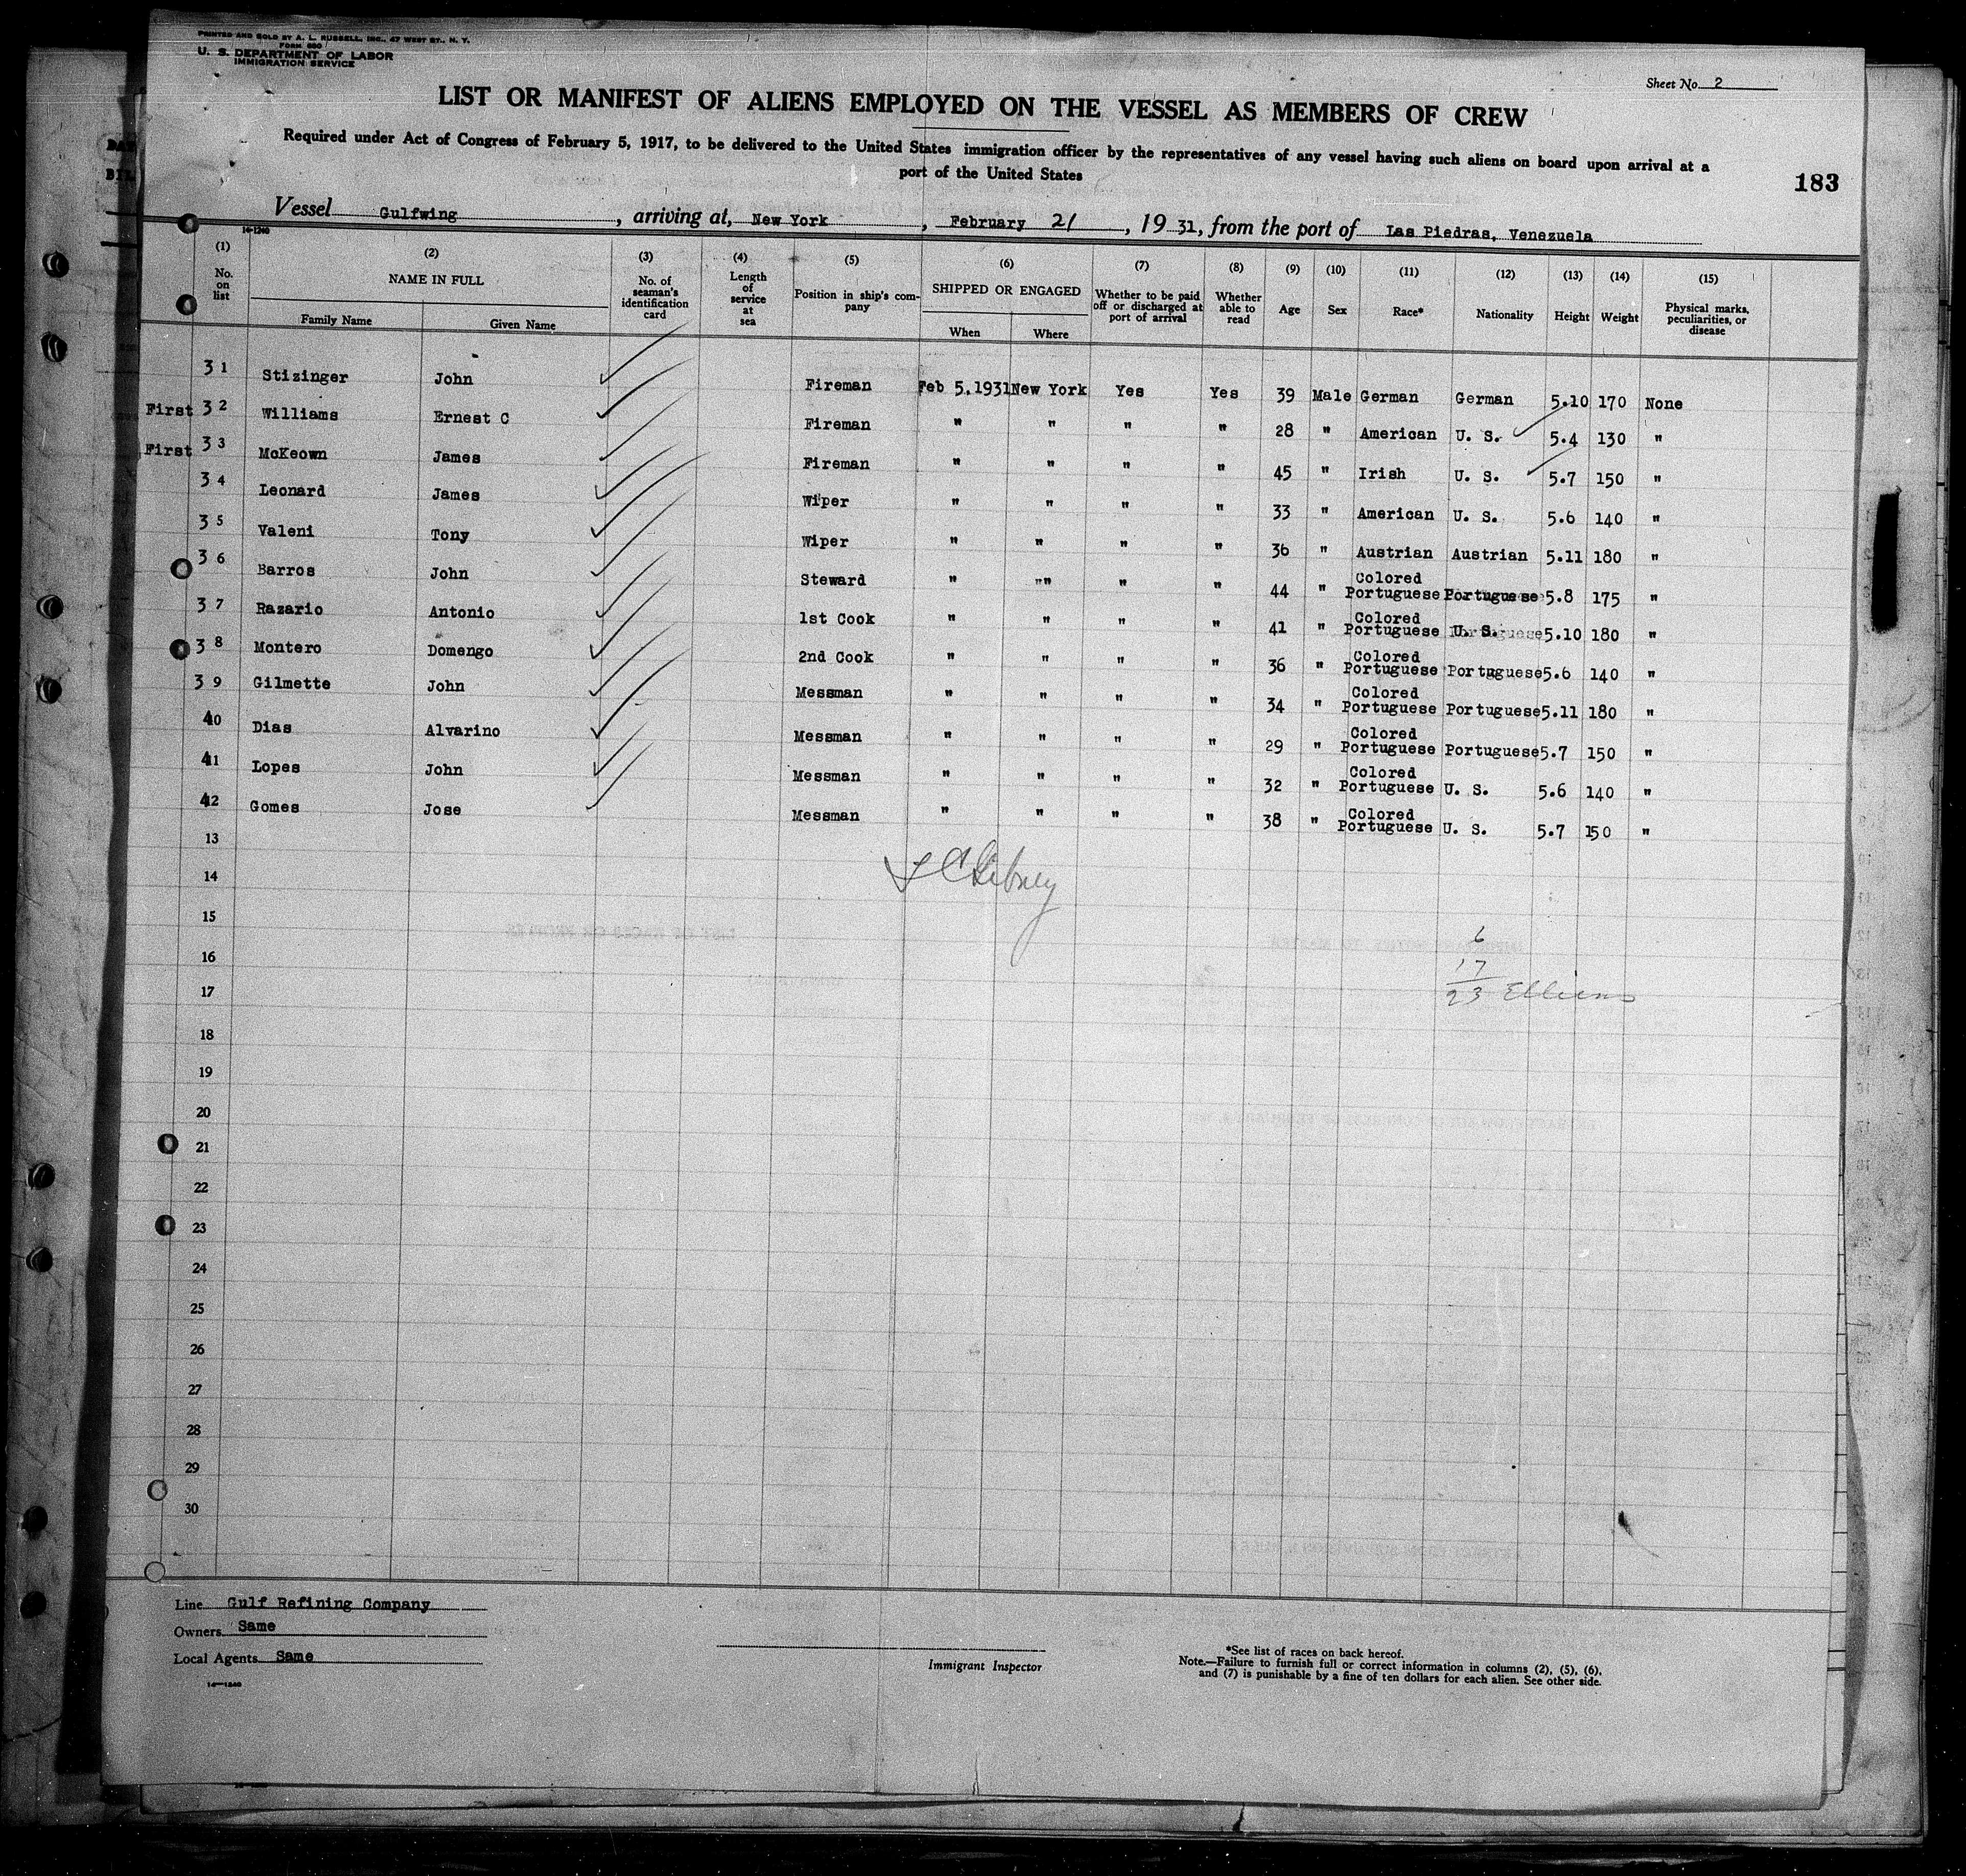 PRINTED AND SOLD BY A. L. RUSSELL, INC., 47 WEST ST., N. Y.
FORM 680
U. S. DEPARTMENT OF LABOR
IMMIGRATION SERVICE
Sheet No. 2
LIST OR MANIFEST OF ALIENS EMPLOYED ON THE VESSEL AS MEMBERS OF CREW
Required under Act of Congress of February 5, 1917, to be delivered to the United States immigration officer by the representatives of any vessel having such aliens on board upon arrival at a
port of the United States
183
Vessel Gulfwing, arriving at, New York, February 21, 19 31, from the port of Las Piedras, Venezuela
14-1240
(1) (2) (3) (4) (5) (6) (7) (8) (9) (10) (11) (12) (13) (14) (15)
No. on list NAME IN FULL Family Name Given Name No. of seaman's identification card Length of service at sea Position in ship's company SHIPPED OR ENGAGED When Where Whether to be paid off or discharged at port of arrival Whether able to read Age Sex Race* Nationality Height Weight Physical marks, peculiarities, or disease
31 Stizinger John Fireman Feb 5,1931 New York Yes Yes 39 Male German German 5.10 170 None
First 32 Williams Ernest C Fireman " " " " 28 " American U. S. 5.4 130 "
First 33 McKeown James Fireman " " " " 45 " Irish U. S. 5.7 150 "
34 Leonard James Wiper " " " " 33 " American U. S. 5.6 140 "
35 Valeni Tony Wiper " " " " 36 " Austrian Austrian 5.11 180 "
36 Barros John Steward " "" " " 44 " Colored Portuguese Portuguese 5.8 175 "
37 Razario Antonio 1st Cook " " " " 41 " Colored Portuguese U. S. 5.10 180 "
38 Montero Domengo 2nd Cook " " " " 36 " Colored Portuguese Portuguese 5.6 140 "
39 Gilmette John Messman " " " " 34 " Colored Portuguese Portuguese 5.11 180 "
40 Dias Alvarino Messman " " " " 29 " Colored Portuguese Portuguese 5.7 150 "
41 Lopes John Messman " " " " 32 " Colored Portuguese U. S. 5.6 140 "
42 Gomes Jose Messman " " " " 38 " Colored Portuguese U. S. 5.7 150 "
13
14
15
6
16
17
17
23
18
19
20
21
22
23
24
25
26
27
28
29
30
Line Gulf Refining Company
Owners Same
Local Agents Same
14-1240
Immigrant Inspector
*See list of races on back hereof.
Note.—Failure to furnish full or correct information in columns (2), (5), (6),
and (7) is punishable by a fine of ten dollars for each alien. See other side.